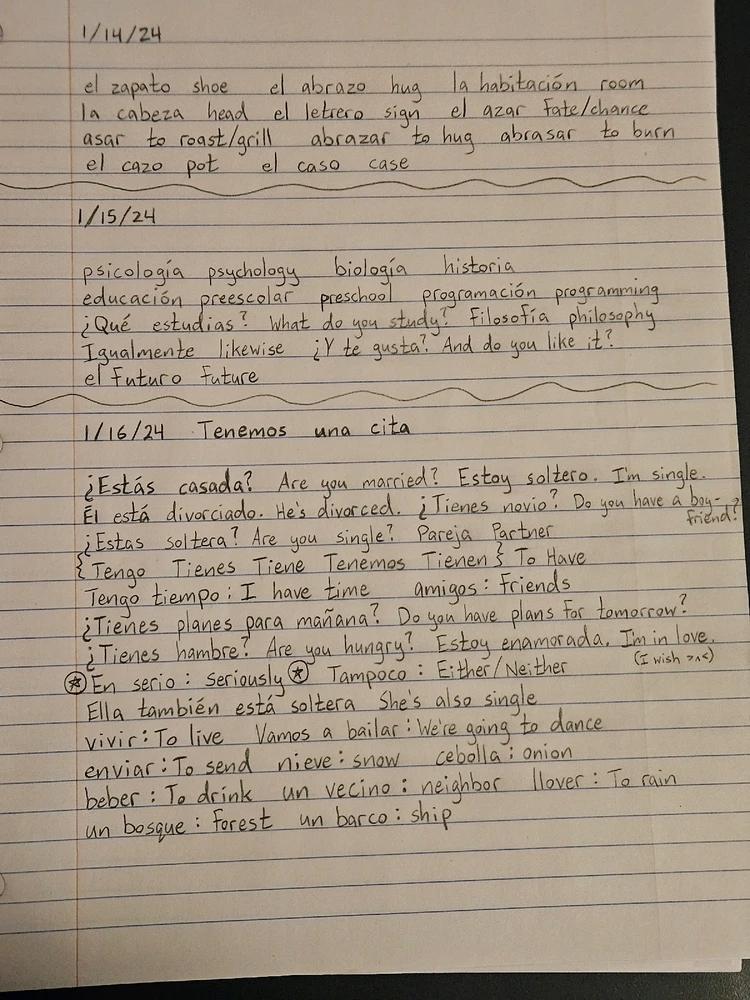 1/14/24
el zapato shoe el abrazo hug la habitación room
la cabeza head el letrero sign el azar fate/chance
asar to roast/grill abrazar to hug abrasar to burn
el cazo pot el caso case
1/15/24
psicología psychology biología historia
educación preescolar preschool programación programming
¿Qué estudias? What do you study? Filosofía philosophy
Igualmente likewise ¿Y te gusta? And do you like it?
el futuro future
1/16/24 Tenemos una cita
¿Estás casada? Are you married? Estoy soltero. I'm single.
Él está divorciado. He's divorced. ¿Tienes novio? Do you have a boy-
friend?
¿Estas soltera? Are you single? Pareja Partner
{Tengo Tienes Tiene Tenemos Tienen} To Have
Tengo tiempo: I have time amigos: Friends
¿Tienes planes para mañana? Do you have plans for tomorrow?
¿Tienes hambre? Are you hungry? Estoy enamorada. I'm in love.
(I wish >^<)
⍟ En serio: Seriously ⍟ Tampoco: Either/Neither
Ella también está soltera She's also single
vivir: To live Vamos a bailar: We're going to dance
enviar: To send nieve: snow cebolla: onion
beber: To drink un vecino: neighbor llover: To rain
un bosque: forest un barco: ship